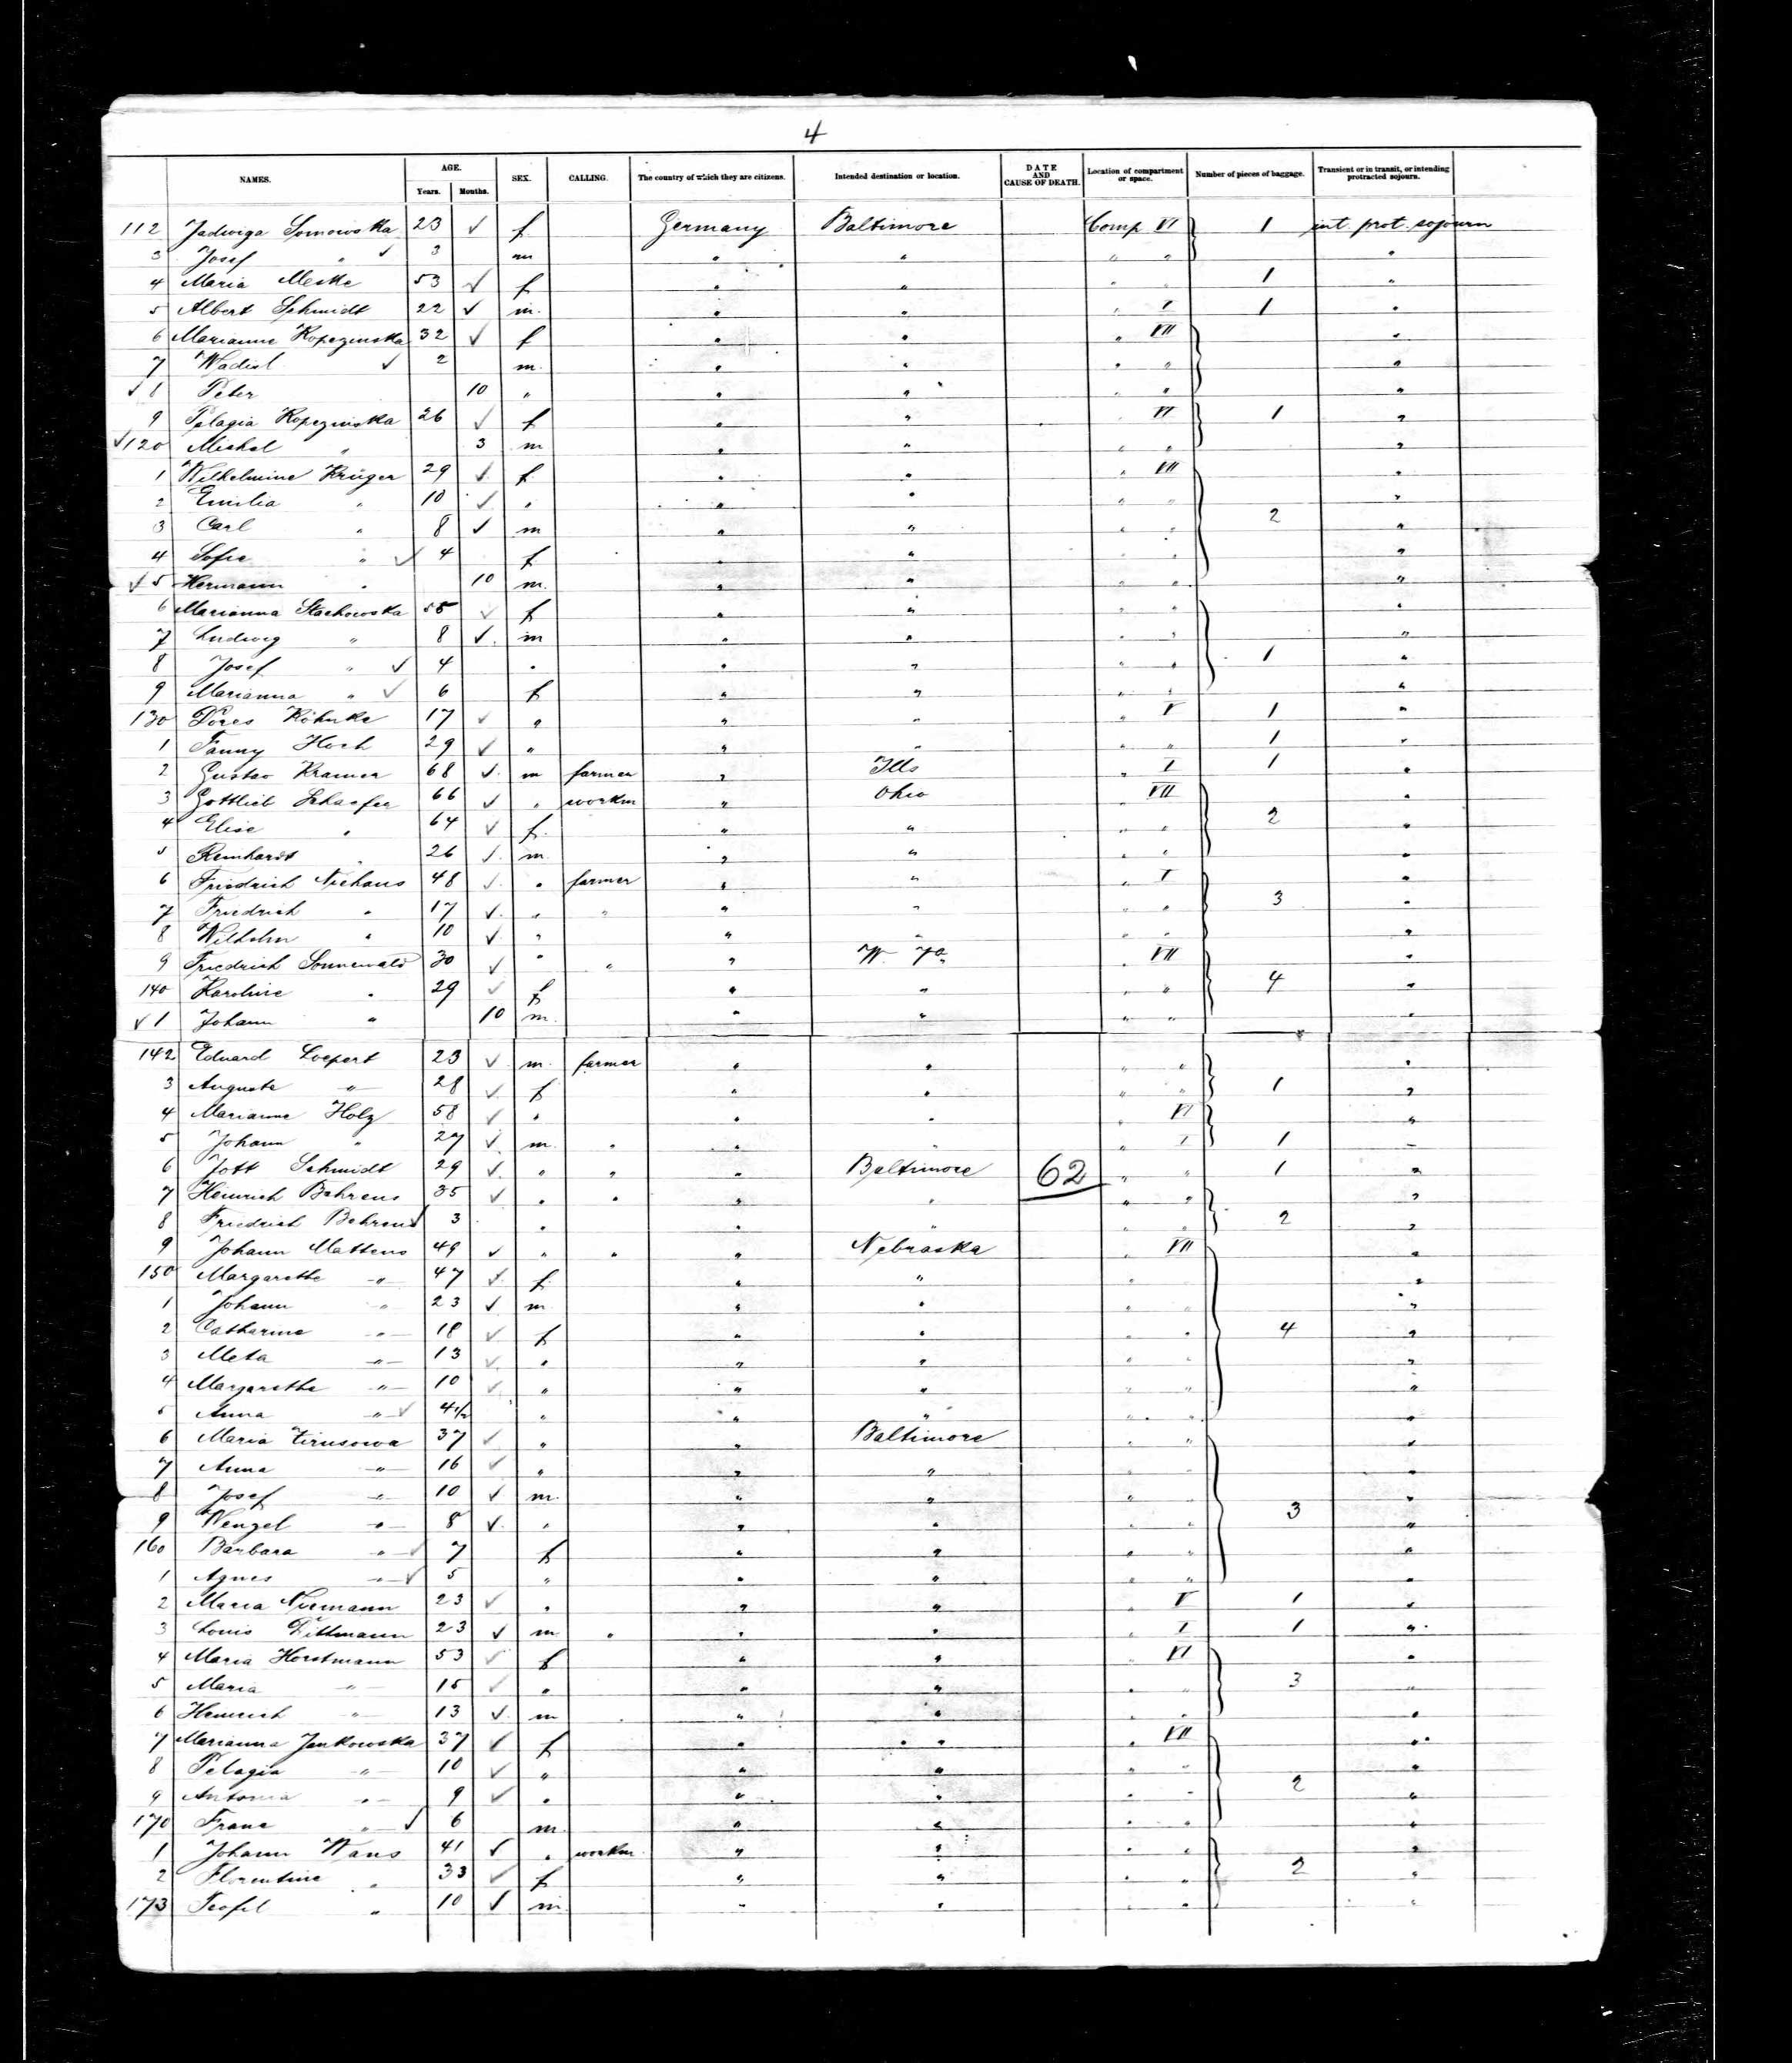 4
NAMES. AGE. Years. Months. SEX. CALLING. The country of which they are citizens. Intended destination or location. DATE AND CAUSE OF DEATH. Location of compartment or space. Number of pieces of baggage. Transient or in transit, or intending protracted sojourn.
112 Jadwiga Somowska 23 ✓ f Germany Baltimore Comp VI 1 int. prot. sojourn
3 Josef " ✓ 3 m " " " " "
4 Maria Meske 53 ✓ f " " " " 1 "
5 Albert Schmidt 22 ✓ m. " " " I 1 "
6 Marianne Kopczinska 32 ✓ f " " " VII "
7 Wadisl ✓ 2 m. " " " " "
✓ 8 Peter 10 " " " " " "
9 Pelagia Kopczinska 26 ✓ f " " " VI 1 "
✓ 120 Michal " 3 m " " " " "
1 Wilhelmine Krüger 29 ✓ f. " " " VII "
2 Emilia " 10 ✓ " " " " " "
3 Carl " 8 ✓ m " " " " 2 "
4 Sofie " ✓ 4 f " " " " "
✓ 5 Hermann " 10 m. " " " " "
6 Marianna Stachowska 55 ✓ f " " " " "
7 Ludwig " 8 ✓ m " " " " "
8 Josef " ✓ 4 " " " " " 1 "
9 Marianna " ✓ 6 f " " " " "
130 Dores Köhnke 17 ✓ " " " " V 1 "
1 Fanny Hoch 29 ✓ " " " " " 1 "
2 Gustav Kramer 68 ✓ m farmer " Ills " I 1 "
3 Gottlieb Schaefer 66 ✓ " workm " Ohio " VII "
4 Elise " 64 ✓ f. " " " " 2 "
5 Reinhardt " 26 ✓ m. " " " " "
6 Friedrich Niehaus 48 ✓ " farmer " " " I "
7 Friedrich " 17 ✓ " " " " " " 3 "
8 Wilhelm " 10 ✓ " " " " " "
9 Friedrich Sonnewald 30 ✓ " " " W. Va. " VII "
140 Karoline " 29 ✓ f " " " " 4 "
✓ 1 Johann " 10 m. " " " " "
142 Eduard Loepert 23 ✓ m. farmer " " " " "
3 Auguste " 28 ✓ f " " " " 1 "
4 Marianne Holz 58 ✓ " " " " VI "
5 Johann " 27 ✓ m. " " " " I 1 "
6 Gott Schmidt 29 ✓ " " " Baltimore 62 " " 1 "
7 Heinrich Behrens 35 ✓ " " " " " " "
8 Friedrich Behrens ✓ 3 " " " " " 2 "
9 Johann Mattens 49 ✓ " " " Nebraska " VII "
150 Margarethe " 47 ✓ f. " " " "
1 Johann " 23 ✓ m. " " " " "
2 Catharine " 18 ✓ f " " " " 4 "
3 Meta " 13 ✓ " " " " " "
4 Margarethe " 10 ✓ " " " " " "
5 Anna " ✓ 4½ " " " " " "
6 Maria 37 ✓ " " Baltimore " " "
7 Anna " 16 ✓ " " " " " "
8 Josef " 10 ✓ m. " " " " "
9 Wenzel " 8 ✓ " " " " " 3 "
160 Barbara " ✓ 7 f " " " " "
1 Agnes " ✓ 5 " " " " " "
2 Maria Niemann 23 ✓ " " " " V 1 "
3 Louis Dittmann 23 ✓ m " " " " I 1 "
4 Maria Horstmann 53 ✓ f " " " VI "
5 Maria " 15 ✓ " " " " " 3 "
6 Heinrich " 13 ✓ m " " " " "
7 Marianna Jankowska 37 ✓ f " " " VII "
8 Pelagia " 10 ✓ " " " " " "
9 Antonia " 9 ✓ " " " " " 2 "
170 Franz " ✓ 6 m " " " " "
1 Johann Wans 41 ✓ " workm " " " " "
2 Florentine " 33 ✓ f " " " " 2 "
173 Teofil " 10 ✓ m " " " " "